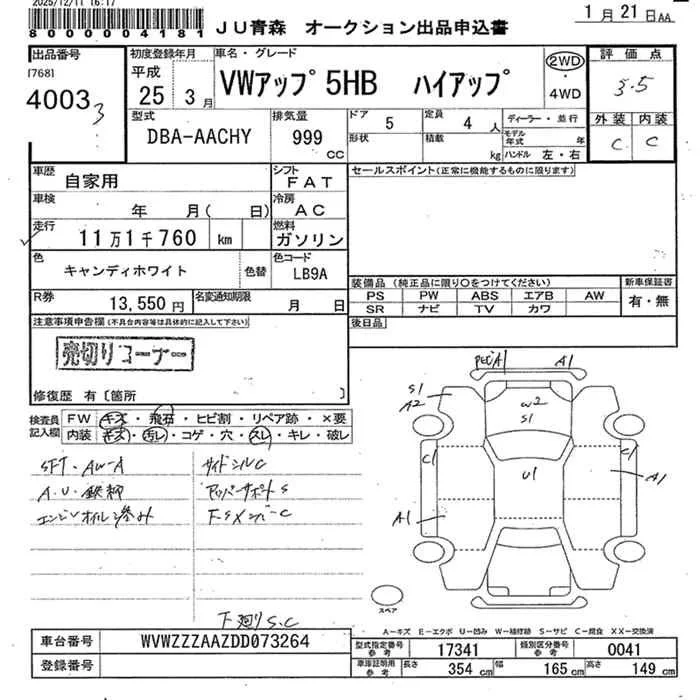 2025/12/11 16:17
8000004181
JU青森 オークション出品申込書
1月21日AA
出品番号
[768]
4003
3
初度登録年月
平成
25 3月
車名・グレード
VWアップ 5HB ハイアップ
2WD
4WD
評価点
3.5
外装 内装
C C
型式
DBA-AACHY
排気量
999
cc
ドア 5
定員 4人
形状
積載 kg
ディーラー・並行
モデル年式 年
ハンドル 左・右
車歴
自家用
シフト
FAT
セールスポイント(正常に機能するものに限ります)
車検
年 月( 日)
冷房
AC
走行
11万1千760 km
燃料
ガソリン
色
キャンディホワイト
色替
色コード
LB9A
装備品 (純正品に限り○をつけてください)
新車保証書
PS PW ABS エアB AW
SR ナビ TV カワ
有・無
R券
13,550円
名変通知期限
月 日
後日品
注意事項申告欄(不具合内容等は具体的に記入して下さい)
売切りコーナー
修復歴 有〔箇所 〕
検査員記入欄
FW キズ・飛石・ヒビ割・リペア跡・×要
内装 キズ・汚レ・コゲ・穴・スレ・キレ・破レ
SFT・AW-A
サイドシルC
A.U・鉄柄
アッパーサポートS
エンジンオイル滲み
F.SメンバーC
下廻りS.C
A1
A1
S1
A2
W2
S1
C1
C1
U1
A1
A1
スペア
A-キズ E-エクボ U-凹み W-補修跡 S-サビ C-腐食 XX-交換済
車台番号
WVWZZZAAZDD073264
登録番号
型式指定番号 参考
17341
類別区分番号 参考
0041
車庫証明用 参考
長さ 354 cm
幅 165 cm
高さ 149 cm